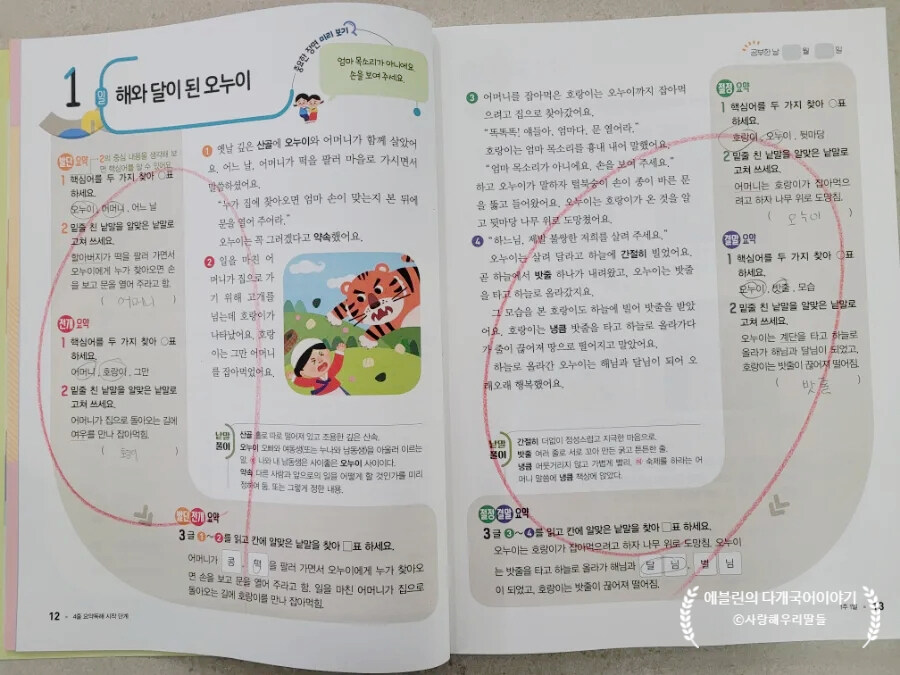 중요한 장면 미리 보기
1일
해와 달이 된 오누이
엄마 목소리가 아니에요.
손을 보여 주세요.
발단 요약
2의 중심 내용을 생각해 보
면 핵심어를 알 수 있어요.
1 핵심어를 두 가지 찾아 ○표
하세요.
오누이, 어머니, 어느 날
2 밑줄 친 낱말을 알맞은 낱말로
고쳐 쓰세요.
할아버지가 떡을 팔러 가면서
오누이에게 누가 찾아오면 손
을 보고 문을 열어 주라고 함.
( 어머니 )
전개 요약
1 핵심어를 두 가지 찾아 ○표
하세요.
어머니, 호랑이, 그만
2 밑줄 친 낱말을 알맞은 낱말로
고쳐 쓰세요.
어머니가 집으로 돌아오는 길에
여우를 만나 잡아먹힘.
1 옛날 깊은 산골에 오누이와 어머니가 함께 살았어
요. 어느 날, 어머니가 떡을 팔러 마을로 가시면서
말씀하셨어요.
“누가 집에 찾아오면 엄마 손이 맞는지 본 뒤에
문을 열어 주어라.”
오누이는 꼭 그러겠다고 약속했어요.
2 일을 마친 어
머니가 집으로 가
기 위해 고개를
넘는데 호랑이가
나타났어요. 호랑
이는 그만 어머니
를 잡아먹었어요.
낱말 풀이
산골 홀로 따로 떨어져 있고 조용한 깊은 산속.
오누이 오빠와 여동생(또는 누나와 남동생)을 아울러 이르는
말. 예 나와 내 남동생은 사이좋은 오누이 사이이다.
약속 다른 사람과 앞으로의 일을 어떻게 할 것인가를 미리
정하여 둠. 또는 그렇게 정한 내용.
발단 전개 요약
3 글 1~2를 읽고 칸에 알맞은 낱말을 찾아 □표 하세요.
어머니가 콩 떡 을 팔러 가면서 오누이에게 누가 찾아오
면 손을 보고 문을 열어 주라고 함. 일을 마친 어머니가 집으로
돌아오는 길에 호랑이를 만나 잡아먹힘.
12 • 4줄 요약독해 시작 단계
공부한 날 월 일
3 어머니를 잡아먹은 호랑이는 오누이까지 잡아먹
으려고 집으로 찾아갔어요.
“똑똑똑, 얘들아, 엄마다. 문 열어라.”
호랑이는 엄마 목소리를 흉내 내어 말했어요.
“엄마 목소리가 아니에요. 손을 보여 주세요.”
하고 오누이가 말하자 털북숭이 손이 종이 바른 문
을 뚫고 들어왔어요. 오누이는 호랑이가 온 것을 알
고 뒷마당 나무 위로 도망쳤어요.
4 “하느님, 제발 불쌍한 저희를 살려 주세요.”
오누이는 살려 달라고 하늘에 간절히 빌었어요.
곧 하늘에서 밧줄 하나가 내려왔고, 오누이는 밧줄
을 타고 하늘로 올라갔지요.
그 모습을 본 호랑이도 하늘에 빌어 밧줄을 받았
어요. 호랑이는 냉큼 밧줄을 타고 하늘로 올라가다
가 줄이 끊어져 땅으로 떨어지고 말았어요.
하늘로 올라간 오누이는 해님과 달님이 되어 오
래오래 행복했어요.
낱말 풀이
간절히 더없이 정성스럽고 지극한 마음으로.
밧줄 여러 줄로 서로 꼬아 만든 굵고 튼튼한 줄.
냉큼 머뭇거리지 않고 가볍게 빨리. 예 숙제를 하라는 어
머니 말씀에 냉큼 책상에 앉았다.
절정 요약
1 핵심어를 두 가지 찾아 ○표
하세요.
호랑이, 오누이, 뒷마당
2 밑줄 친 낱말을 알맞은 낱말로
고쳐 쓰세요.
어머니는 호랑이가 잡아먹으
려고 하자 나무 위로 도망침.
( 오누이 )
결말 요약
1 핵심어를 두 가지 찾아 ○표
하세요.
오누이, 밧줄, 모습
2 밑줄 친 낱말을 알맞은 낱말로
고쳐 쓰세요.
오누이는 계단을 타고 하늘로
올라가 해님과 달님이 되었고,
호랑이는 밧줄이 끊어져 떨어짐.
( 밧줄 )
절정 결말 요약
3 글 3~4를 읽고 칸에 알맞은 낱말을 찾아 □표 하세요.
오누이는 호랑이가 잡아먹으려고 하자 나무 위로 도망침. 오누이
는 밧줄을 타고 하늘로 올라가 해님과 달 님, 별 님
이 되었고, 호랑이는 밧줄이 끊어져 떨어짐.
1주 1일 • 13
에블린의 다개국어이야기
©사랑해우리딸들